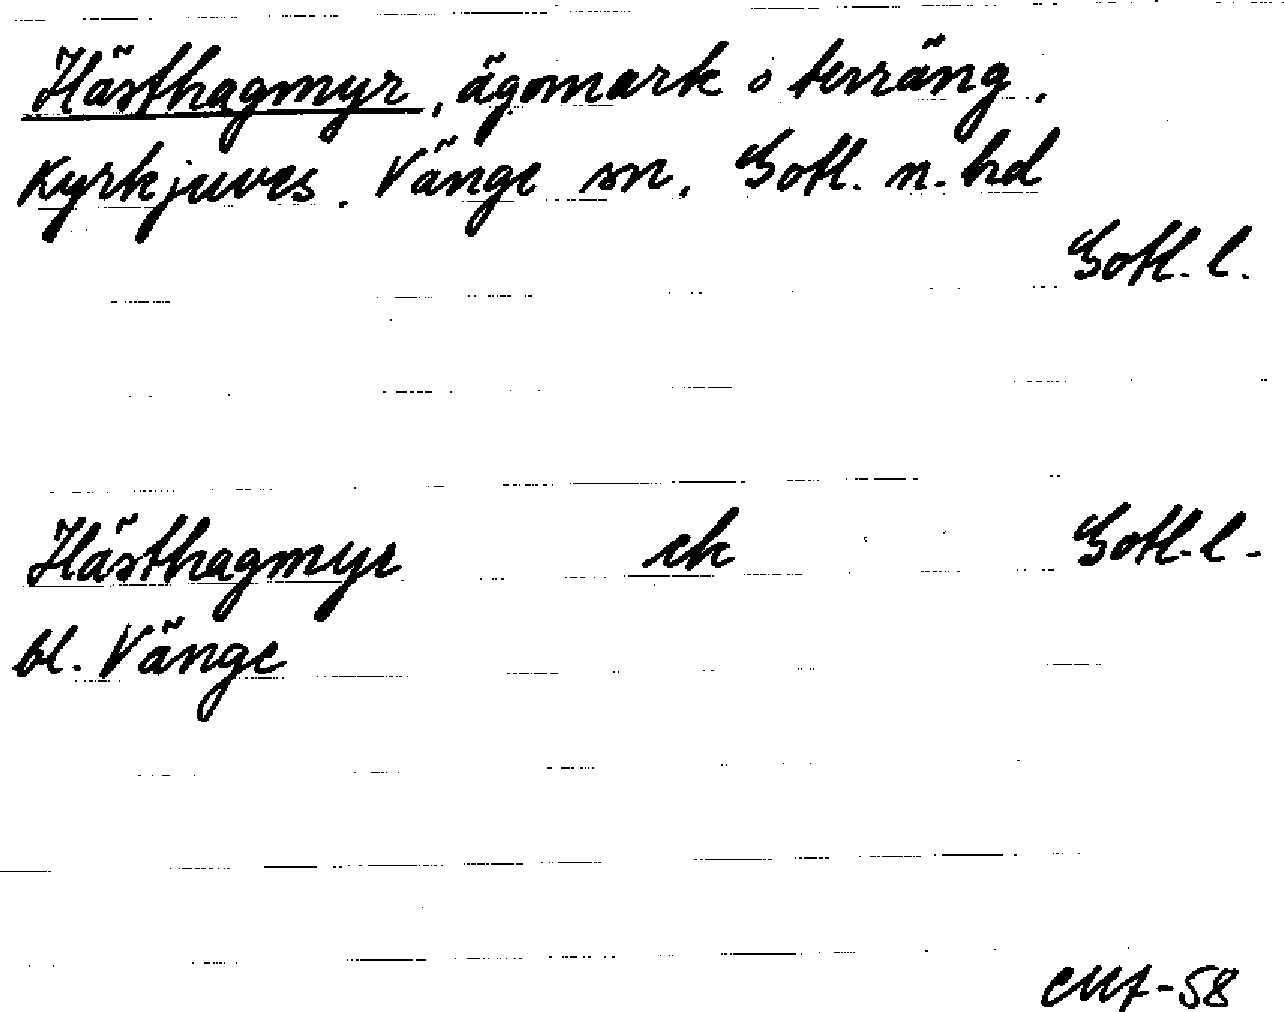 Hästhagmyr, ägomark o terräng.
Kyrkjuves. Vänge sn. Gotl. n. hd
Gotl. l.
Hästhagmyr ek Gotl. l.
bl. Vänge